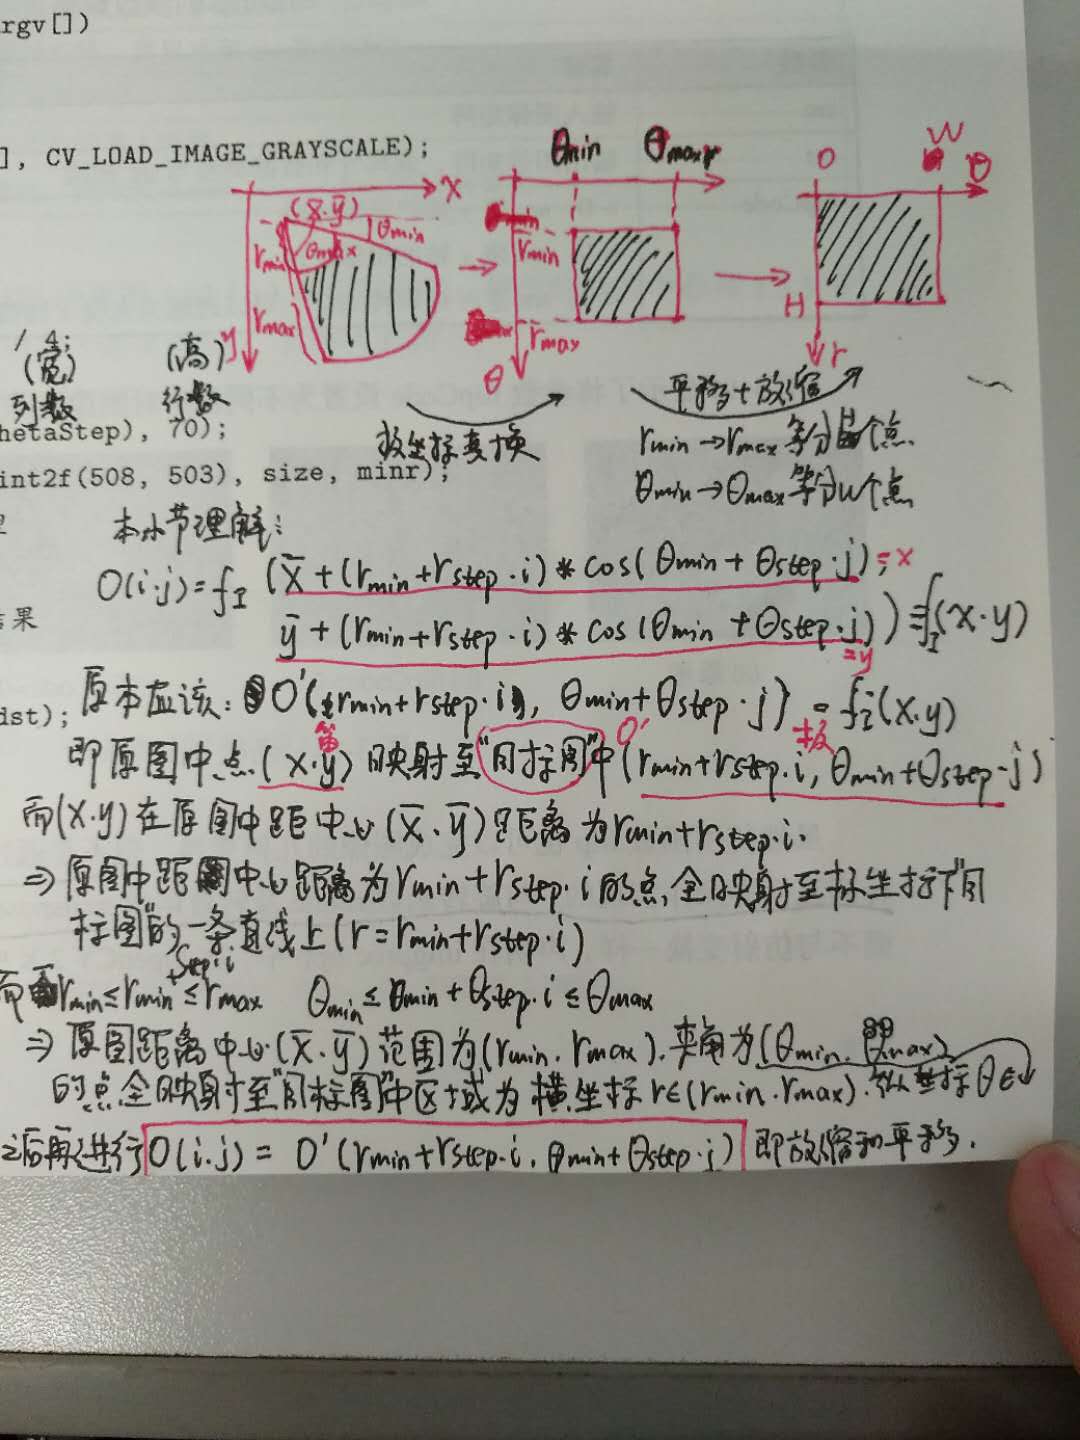 rgv[])
], CV_LOAD_IMAGE_GRAYSCALE);
θmin θmax r
0 W θ
x
(x̄.ȳ)
θmin
rmin θmax
rmin
rmax
rmax
H
y
θ
r
/ 4;
(宽) (高)
列数 行数
hetaStep), 70);
极坐标变换
平移+放缩
rmin→rmax 等分 个点.
int2f(508, 503), size, minr);
θmin→θmax 等分W个点
本小节理解:
O(i.j)=fI (x̄+(rmin+rstep.i)*cos(θmin+θstep.j), =x
结果
ȳ+(rmin+rstep.i)*cos(θmin+θstep.j)) =fI(x.y)
=y
dst);
原本应该: O'(rmin+rstep.i, θmin+θstep.j) = fI(x.y)
笛 O' 极
即原图中点(x.y)映射至"目标图"中(rmin+rstep.i, θmin+θstep.j)
而(x.y)在原图中距中心(x̄.ȳ)距离为rmin+rstep.i.
⇒原图中距中心距离为rmin+rstep.i的点,全映射至标坐标下"目
标图"的一条直线上(r=rmin+rstep.i)
而 rmin≤rmin+step.i≤rmax θmin≤θmin+θstep.i≤θmax
⇒原图距离中心(x̄.ȳ)范围为(rmin.rmax).夹角为(θmin.θmax)
的点全映射至"目标图"中区域为横坐标r∈(rmin.rmax).纵坐标θ∈
之后再进行O(i.j) = O'(rmin+rstep.i. θmin+θstep.j) 即放缩和平移.